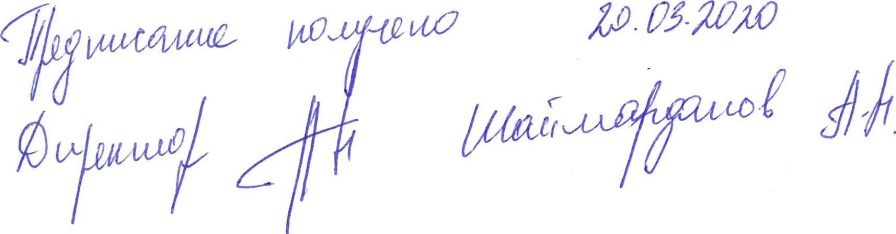 Предписание получено 20.03.2020
Директор Шаймарданов А.Н.